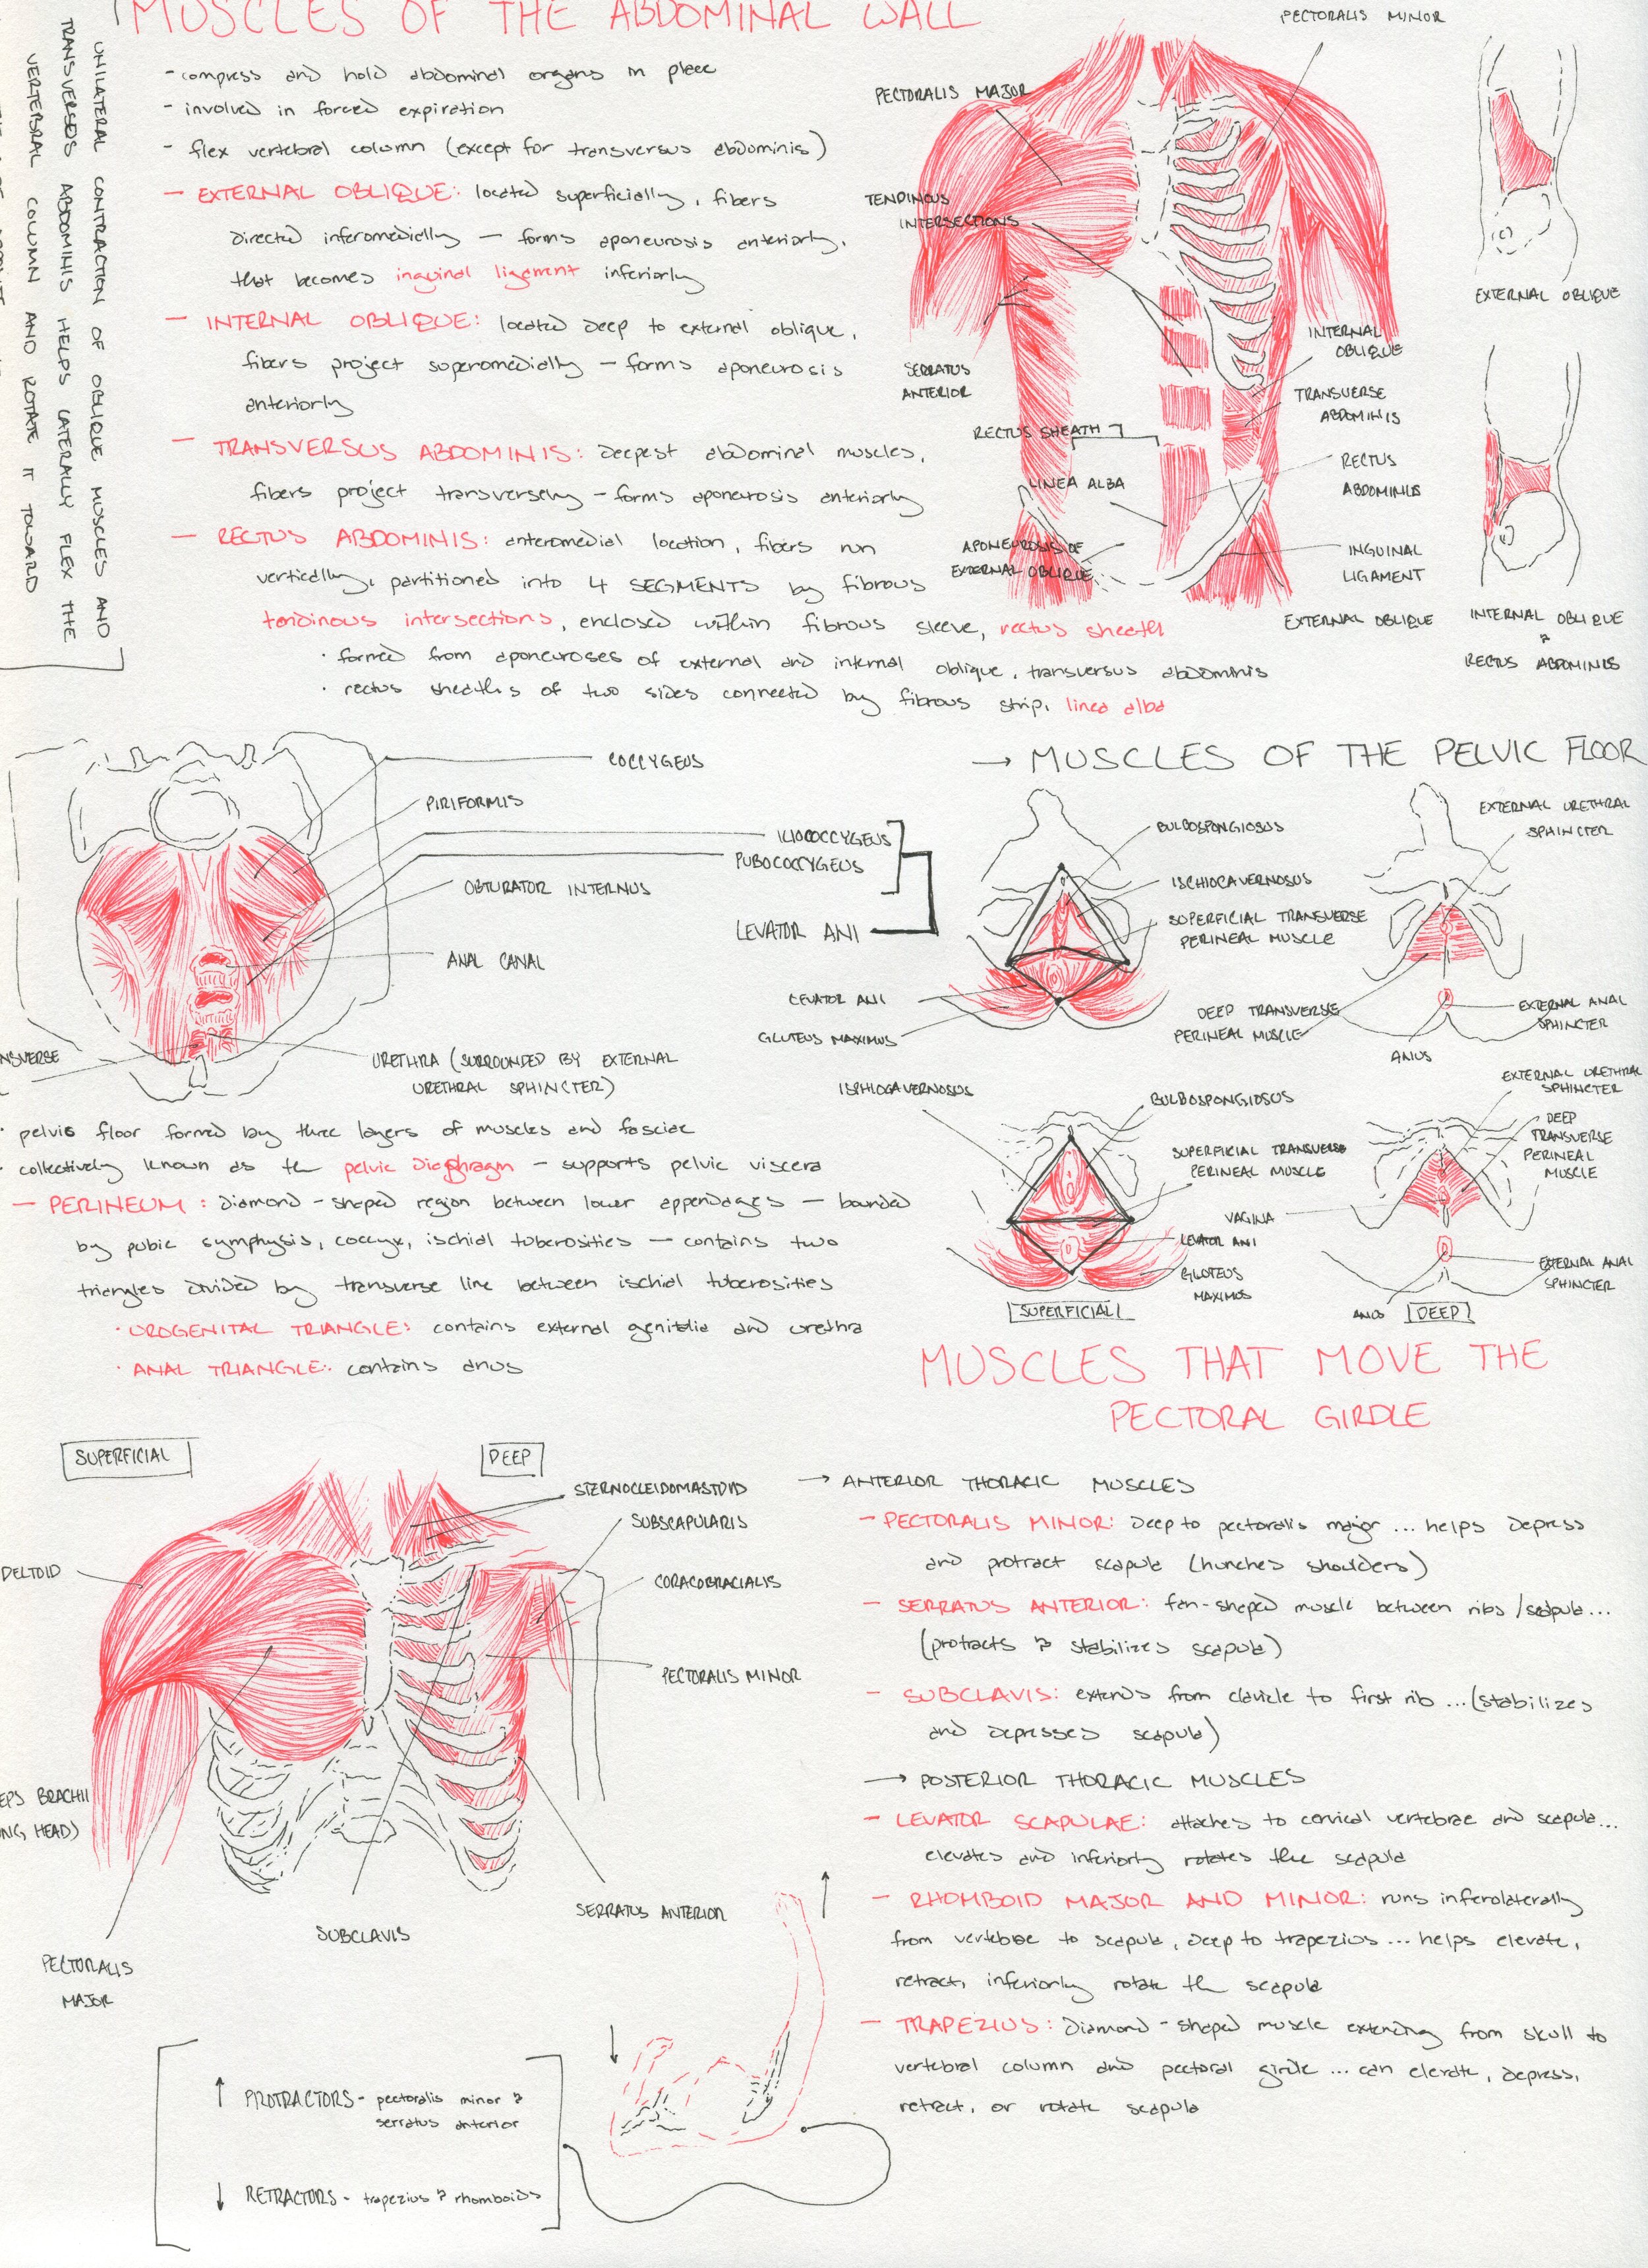 MUSCLES OF THE ABDOMINAL WALL
- compress and hold abdominal organs in place
- involved in forced expiration
- flex vertebral column (except for transversus abdominis)
- EXTERNAL OBLIQUE: located superficially, fibers
directed inferomedially - forms aponeurosis anteriorly,
that becomes inguinal ligament inferiorly
- INTERNAL OBLIQUE: located deep to external oblique,
fibers project superomedially - forms aponeurosis
anteriorly
- TRANSVERSUS ABDOMINIS: deepest abdominal muscles,
fibers project transversely - forms aponeurosis anteriorly
- RECTUS ABDOMINIS: anteromedial location, fibers run
vertically, partitioned into 4 SEGMENTS by fibrous
tendinous intersections, enclosed within fibrous sleeve, rectus sheath
· formed from aponeuroses of external and internal oblique, transversus abdominis
· rectus sheaths of two sides connected by fibrous strip, linea alba
UNILATERAL CONTRACTION OF OBLIQUE MUSCLES AND
TRANSVERSUS ABDOMINIS HELPS LATERALLY FLEX THE
VERTEBRAL COLUMN AND ROTATE IT TOWARD
PECTORALIS MINOR
PECTORALIS MAJOR
TENDINOUS
INTERSECTIONS
SERRATUS
ANTERIOR
RECTUS SHEATH
LINEA ALBA
APONEUROSIS OF
EXTERNAL OBLIQUE
INTERNAL
OBLIQUE
TRANSVERSE
ABDOMINIS
RECTUS
ABDOMINIS
INGUINAL
LIGAMENT
EXTERNAL OBLIQUE
EXTERNAL OBLIQUE
INTERNAL OBLIQUE
&
RECTUS ABDOMINIS
→ MUSCLES OF THE PELVIC FLOOR
COCCYGEUS
PIRIFORMIS
ILIOCOCCYGEUS
PUBOCOCCYGEUS
OBTURATOR INTERNUS
LEVATOR ANI
ANAL CANAL
NSVERSE
URETHRA (SURROUNDED BY EXTERNAL
URETHRAL SPHINCTER)
BULBOSPONGIOSUS
ISCHIOCAVERNOSUS
SUPERFICIAL TRANSVERSE
PERINEAL MUSCLE
LEVATOR ANI
GLUTEUS MAXIMUS
EXTERNAL URETHRAL
SPHINCTER
DEEP TRANSVERSE
PERINEAL MUSCLE
EXTERNAL ANAL
SPHINCTER
ANUS
ISCHIOCAVERNOSUS
BULBOSPONGIOSUS
SUPERFICIAL TRANSVERSE
PERINEAL MUSCLE
LEVATOR ANI
GLUTEUS
MAXIMUS
SUPERFICIAL
EXTERNAL URETHRAL
SPHINCTER
DEEP
TRANSVERSE
PERINEAL
MUSCLE
VAGINA
EXTERNAL ANAL
SPHINCTER
ANUS
DEEP
· pelvis floor formed by three layers of muscles and fasciae
· collectively known as the pelvic diaphragm - supports pelvic viscera
- PERINEUM: diamond-shaped region between lower appendages - bounded
by pubic symphysis, coccyx, ischial tuberosities - contains two
triangles divided by transverse line between ischial tuberosities
· UROGENITAL TRIANGLE: contains external genitalia and urethra
· ANAL TRIANGLE: contains anus
MUSCLES THAT MOVE THE
PECTORAL GIRDLE
SUPERFICIAL
DEEP
STERNOCLEIDOMASTOID
SUBSCAPULARIS
DELTOID
CORACOBRACIALIS
PECTORALIS MINOR
EPS BRACHII
NG HEAD)
SERRATUS ANTERIOR
SUBCLAVIS
PECTORALIS
MAJOR
→ ANTERIOR THORACIC MUSCLES
- PECTORALIS MINOR: deep to pectoralis major ... helps depress
and protract scapula (hunches shoulders)
- SERRATUS ANTERIOR: fan-shaped muscle between ribs/scapula...
(protracts & stabilizes scapula)
- SUBCLAVIS: extends from clavicle to first rib ... (stabilizes
and depresses scapula)
→ POSTERIOR THORACIC MUSCLES
- LEVATOR SCAPULAE: attaches to cervical vertebrae and scapula...
elevates and inferiorly rotates the scapula
- RHOMBOID MAJOR AND MINOR: runs inferolaterally
from vertebrae to scapula, deep to trapezius ... helps elevate,
retract, inferiorly rotate the scapula
- TRAPEZIUS: diamond-shaped muscle extending from skull to
vertebral column and pectoral girdle ... can elevate, depress,
retract, or rotate scapula
↑ PROTRACTORS - pectoralis minor &
serratus anterior
↓ RETRACTORS - trapezius & rhomboids